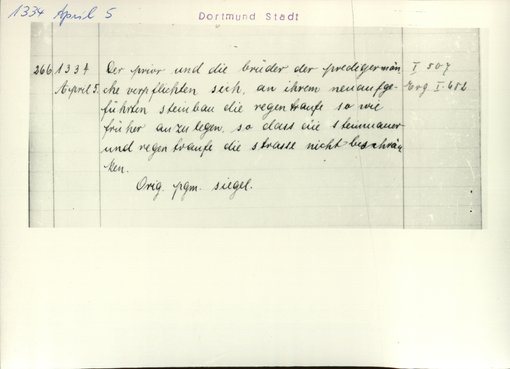 1334 April 5
Dortmund Stadt
266 1334 Der prior und die brüder der predigermön I 507
April 5. che verpflichten sich, an ihrem neuaufge- Erg I. 652
führten steinbau die regentraufe so wie
früher anzulegen, so dass die steinmauer
und regentraufe die strasse nicht beschrän
ken.
Orig. pgm. siegel.